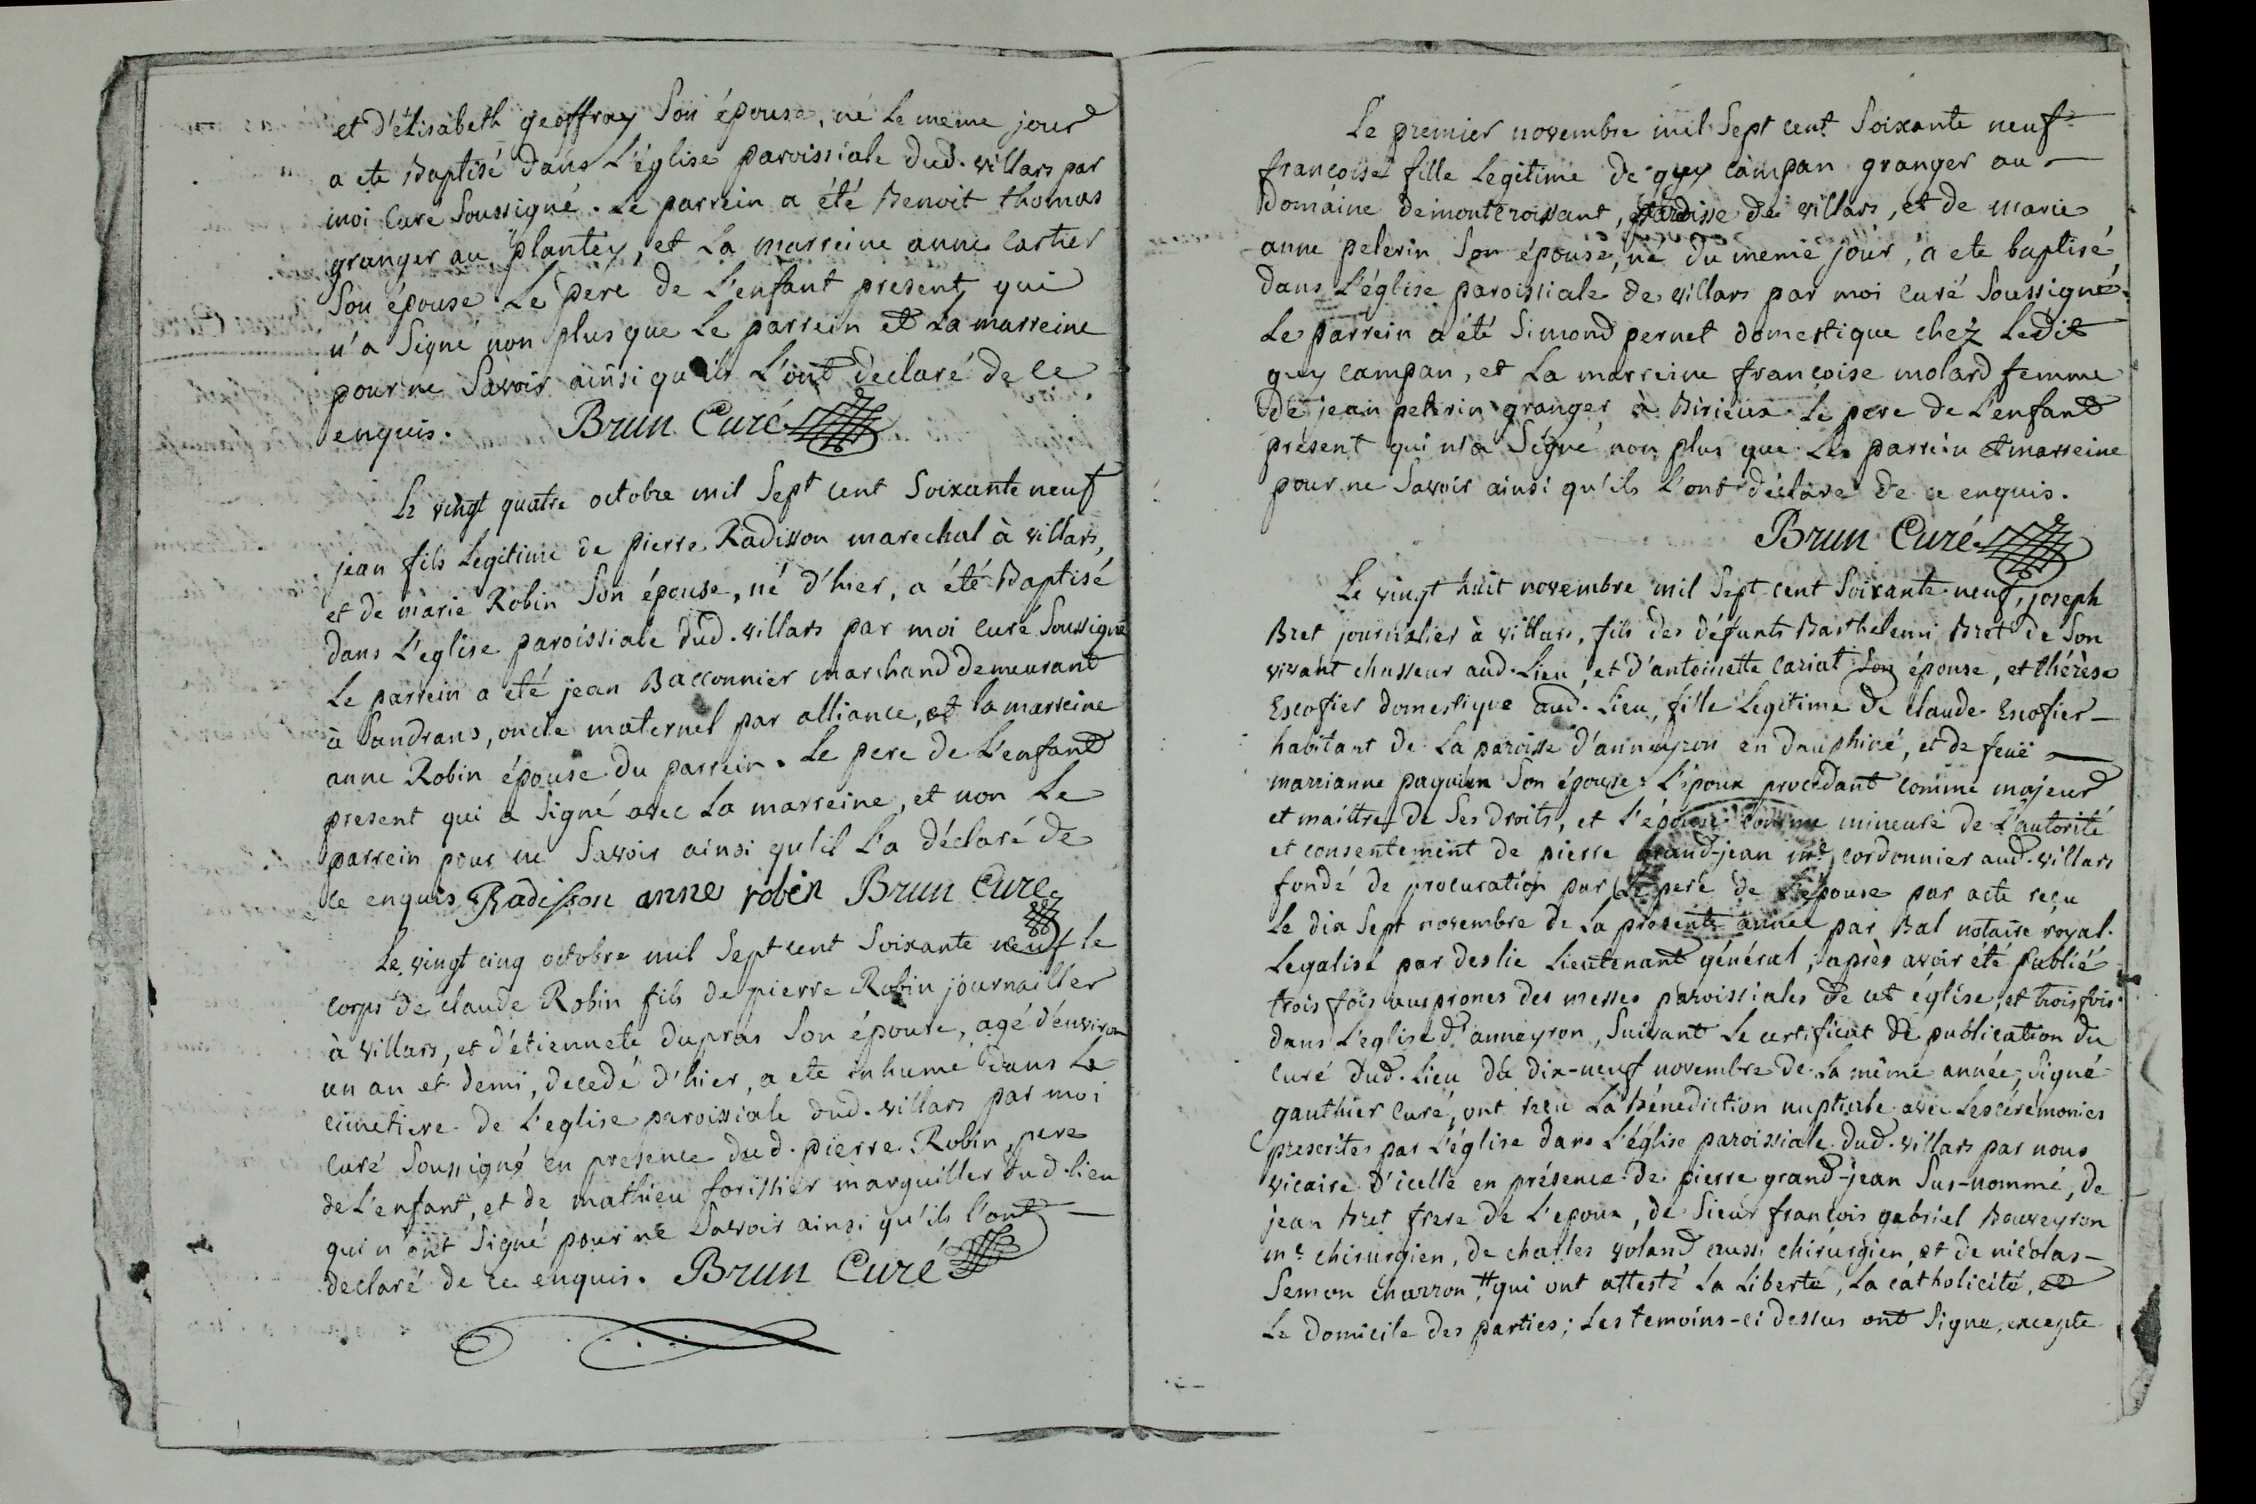 et d'élisabeth geoffray Son épouse, né Le meme jour
a ete Baptisé dans L'église paroissiale dud. villars par
moi Curé Soussigné. Le parrein a été Benoit thomas
granger au plantey, et La marreine anne Cartier
Son épouse. Le pere de L'enfant present qui
n'a Signé non plus que Le parrein et La marreine
pour ne Savoir ainsi qu'ils L'ont declaré de ce
enquis. Brun Curé
Le vingt quatre octobre mil Sept cent Soixante neuf
jean fils Legitime de pierre Radisson marechal à villars,
et de marie Robin Son épouse, né d'hier, a été Baptisé
dans L'eglise paroissiale dud. villars par moi curé Soussigné
Le parrein a été jean Bacconnier marchand demeurant
à Sandrans, oncle maternel par alliance, et la marreine
anne Robin épouse du parrein. Le pere de L'enfant
present qui a Signé avec La marreine, et non Le
parrein pour ne Savoir ainsi qu'il L'a déclaré de
ce enquis Radisson anne robin Brun Curé
Le vingt cinq octobre mil Sept cent Soixante neuf le
corps de claude Robin fils de pierre Robin journailler
à villars, et d'étiennete dupras Son épouse, agé d'environ
un an et demi, decedé d'hier, a ete inhumé dans Le
cimetiere de L'eglise paroissiale dud. villars par moi
curé Soussigné en presence dud. pierre Robin, pere
de L'enfant, et de mathieu forissier marguiller dud. lieu
qui n'ont Signé pour ne Savoir ainsi qu'ils l'ont
declaré de ce enquis. Brun Curé
Le premier novembre mil Sept cent Soixante neuf
françoise fille Legitime de guy campan granger au
Domaine de montcroissant, paroisse de villars, et de marie
anne pelerin Son épouse, né du meme jour, a ete baptisé
dans L'église paroissiale de villars par moi curé Soussigné.
Le parrein a été Simond pernet domestique chez Ledit
guy campan, et La marreine françoise molard femme
de jean pelerin granger à Birieux Le pere de L'enfant
présent qui n'a Signé non plus que Le parrein et marreine
pour ne Savoir ainsi qu'ils L'ont déclaré de ce enquis.
Brun Curé
Le vingt huit novembre mil Sept cent Soixante neuf, joseph
Bret journalier à villars, fils des défunts Barthelemi Bret de Son
vivant chasseur aud. Lieu, et d'antoinette cariat Son épouse, et thérèse
Escofier domestique aud. Lieu, fille Legitime de claude Escofier
habitant de La paroisse d'anneyron en dauphiné, et de feuë
marrianne paquien Son épouse: L'époux procédant comme majeur
et maittre de Ses droits, et L'épouse comme mineure de L'autorité
et consentement de pierre grand-jean me cordonnier aud. villars
fondé de procuration par Le pere de L'épouse par acte reçu
Le dix Sept novembre de La presente année par Bal notaire royal.
Legalisé par deslie Lieutenant général, après avoir été publié
trois fois aux prones des messes paroissiales de cet église, et trois fois
dans L'église d'anneyron, Suivant Le certificat de publication du
curé dud. Lieu du dix-neuf novembre de La même année, Signé
gauthier curé, ont reçu La bénediction nuptiale avec Les cérémonies
prescrites par L'église dans L'église paroissiale dud. villars par nous
vicaire d'icelle en présence de pierre grand-jean Sus-nommé, de
jean Bret frere de L'epoux, de Sieur françois gabriel Bouveyron
me chirurgien, de charles voland aussi chirurgien, et de nicolas
Semon charron, qui ont attesté La Liberté, La catholicité, et
Le domicile des parties; Les temoins-ci dessus ont Signé, excepté